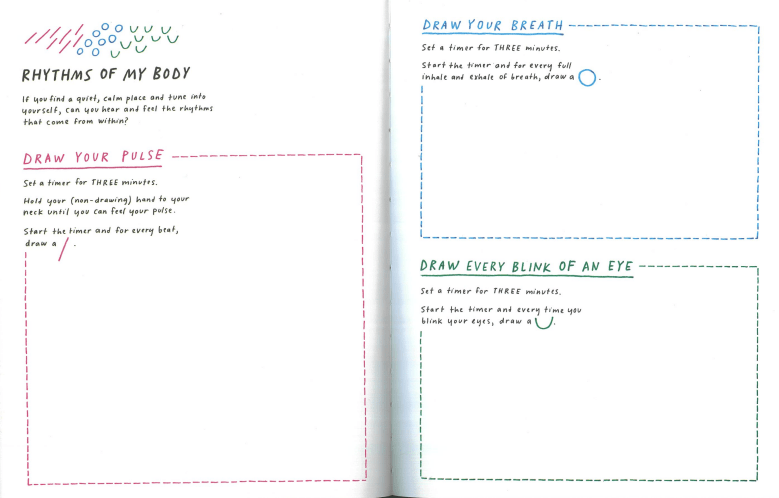 RHYTHMS OF MY BODY
If you find a quiet, calm place and tune into
yourself, can you hear and feel the rhythms
that come from within?
DRAW YOUR PULSE
Set a timer for THREE minutes.
Hold your (non-drawing) hand to your
neck until you can feel your pulse.
Start the timer and for every beat,
draw a / .
DRAW YOUR BREATH
Set a timer for THREE minutes.
Start the timer and for every full
inhale and exhale of breath, draw a ○.
DRAW EVERY BLINK OF AN EYE
Set a timer for THREE minutes.
Start the timer and every time you
blink your eyes, draw a ◡.